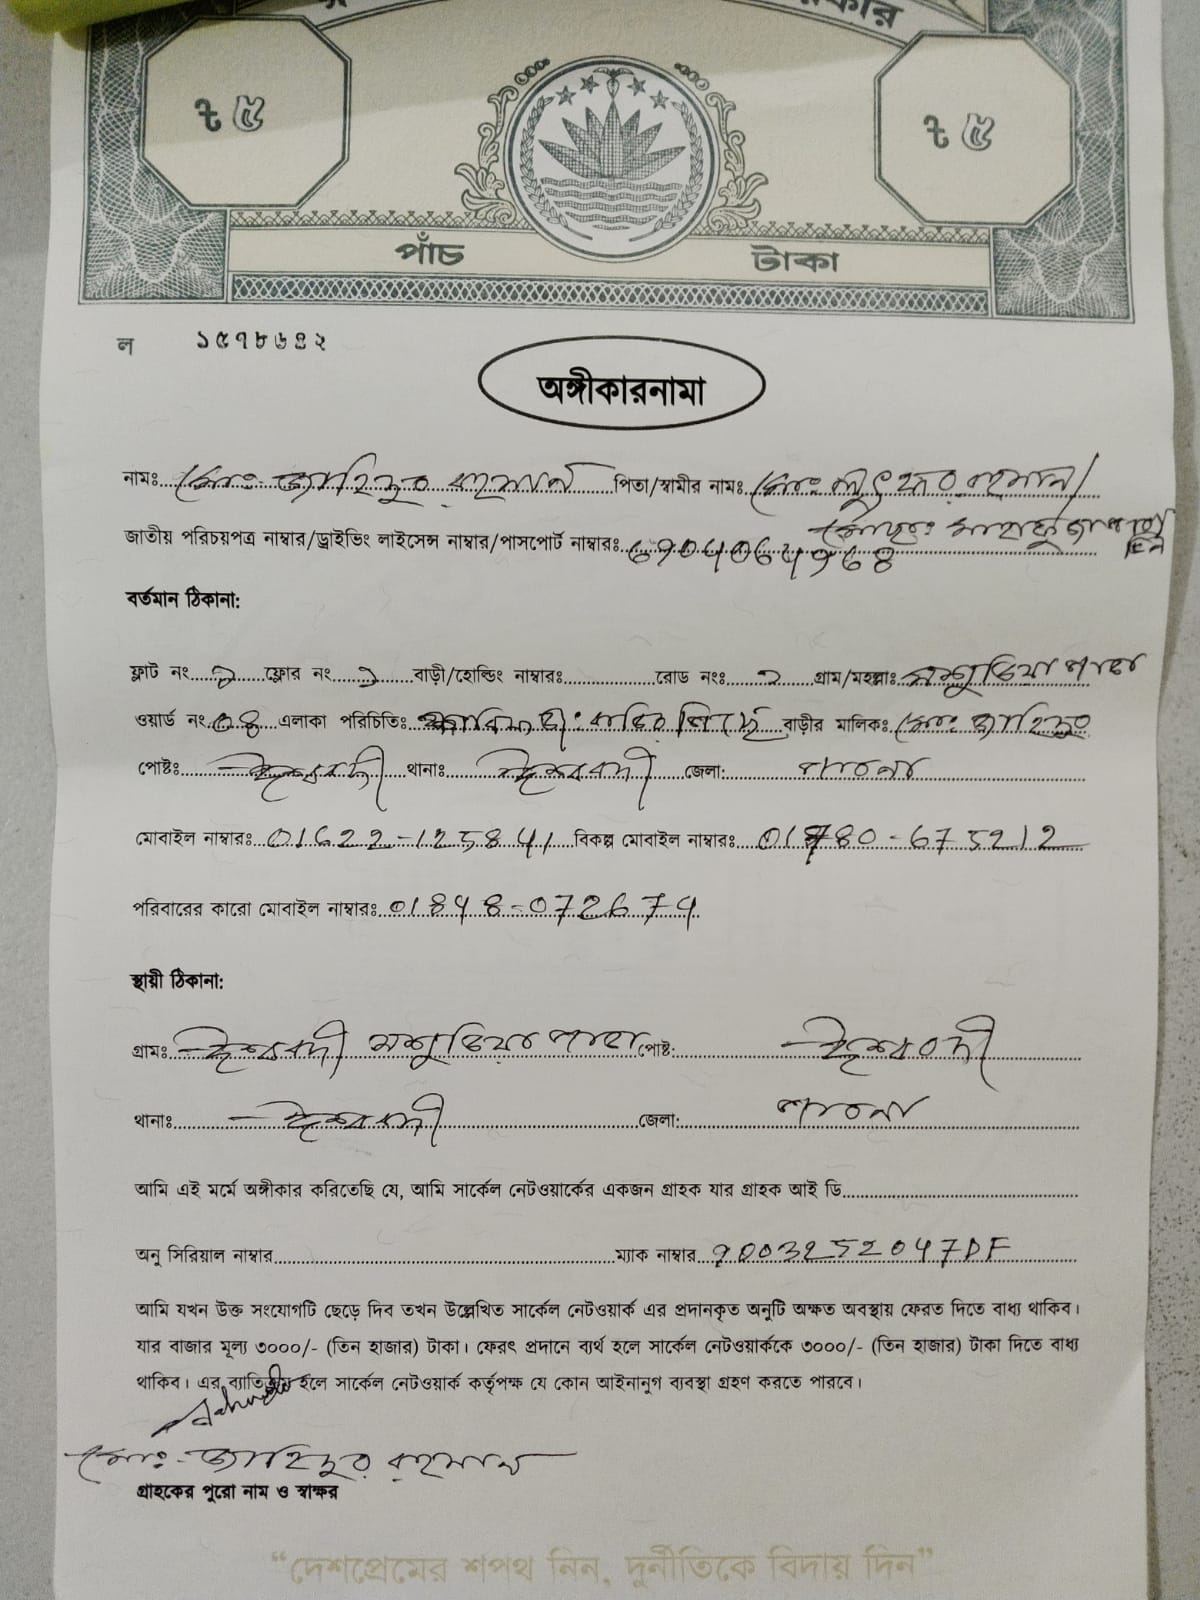 ৳ ৫ ৳ ৫
পাঁচ টাকা
ল ১৫৭৮৬৪২
অঙ্গীকারনামা
নামঃ মোঃ জাহিদুর রহমান পিতা/স্বামীর নামঃ মোঃ লুৎফর রহমান/
জাতীয় পরিচয়পত্র নাম্বার/ড্রাইভিং লাইসেন্স নাম্বার/পাসপোর্ট নাম্বারঃ
বর্তমান ঠিকানা:
ফ্লাট নং ফ্লোর নং বাড়ী/হোল্ডিং নাম্বারঃ রোড নংঃ ২ গ্রাম/মহল্লাঃ মশুড়িয়া পাড়া
ওয়ার্ড নং 04 এলাকা পরিচিতিঃ বাড়ির পিছে বাড়ীর মালিকঃ মোঃ জাহিদুর
পোষ্টঃ ঈশ্বরদী থানাঃ ঈশ্বরদী জেলা: পাবনা
মোবাইল নাম্বারঃ 01622-125841 বিকল্প মোবাইল নাম্বারঃ 01780-675212
পরিবারের কারো মোবাইল নাম্বারঃ 01848-072674
স্থায়ী ঠিকানা:
গ্রামঃ ঈশ্বরদী মশুড়িয়া পাড়া পোষ্ট: ঈশ্বরদী
থানাঃ ঈশ্বরদী জেলা: পাবনা
আমি এই মর্মে অঙ্গীকার করিতেছি যে, আমি সার্কেল নেটওয়ার্কের একজন গ্রাহক যার গ্রাহক আই ডি
অনু সিরিয়াল নাম্বার ম্যাক নাম্বার 9003252047DF
আমি যখন উক্ত সংযোগটি ছেড়ে দিব তখন উল্লেখিত সার্কেল নেটওয়ার্ক এর প্রদানকৃত অনুটি অক্ষত অবস্থায় ফেরত দিতে বাধ্য থাকিব।
যার বাজার মূল্য ৩০০০/- (তিন হাজার) টাকা। ফেরৎ প্রদানে ব্যর্থ হলে সার্কেল নেটওয়ার্ককে ৩০০০/- (তিন হাজার) টাকা দিতে বাধ্য
থাকিব। এর ব্যাতিক্রম হলে সার্কেল নেটওয়ার্ক কর্তৃপক্ষ যে কোন আইনানুগ ব্যবস্থা গ্রহণ করতে পারবে।
মোঃ জাহিদুর রহমান
গ্রাহকের পুরো নাম ও স্বাক্ষর
“দেশপ্রেমের শপথ নিন, দুর্নীতিকে বিদায় দিন”